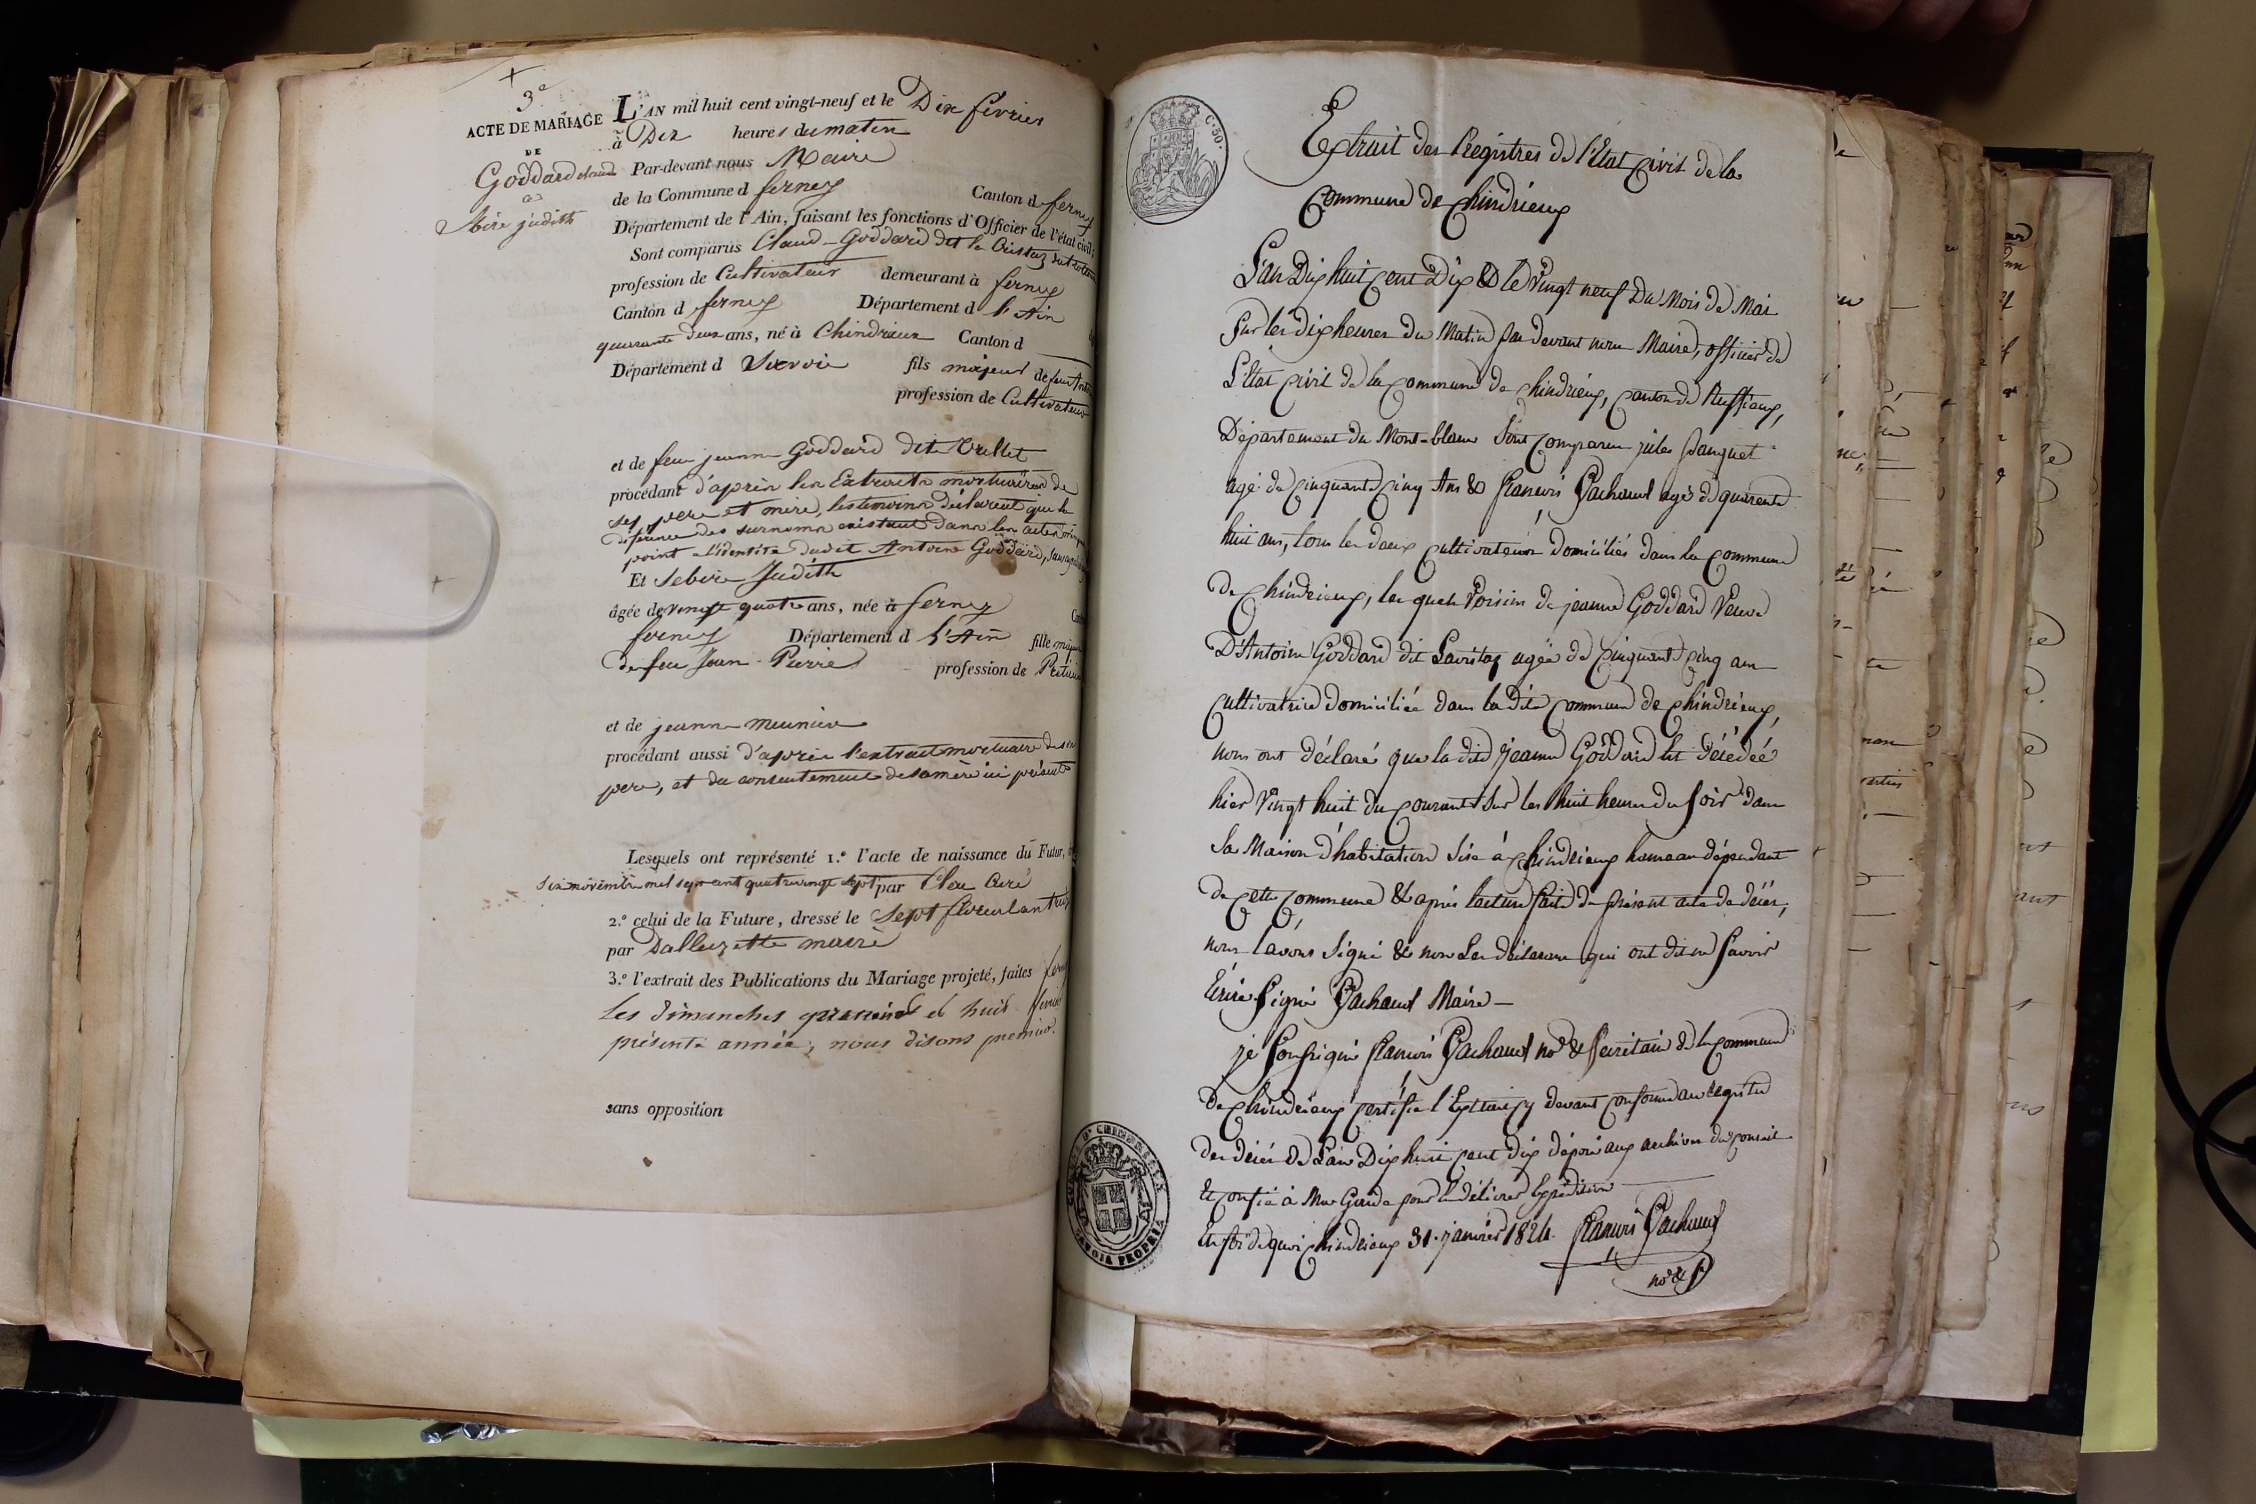 3e
ACTE DE MARIAGE
DE
Goddard Claud
à
Sbire judith
L'AN mil huit cent vingt-neuf et le Dix février
à Dix heures du matin
Par-devant nous Maire
de la Commune d ferney Canton d ferney
Département de l'Ain, faisant les fonctions d'Officier de l'état civil;
Sont comparus Claud Goddard dit la Cristaz
profession de Cultivateur demeurant à ferney
Canton d ferney Département d l'Ain
quarante deux ans, né à Chindrieux Canton d
Département d Savoie fils majeur de feu
profession de Cultivateur
et de feu jeanne Goddard dite
procédant d'après les Extraits mortuaires de
ses père et mère, les témoins déclarent que la
diférence des surnoms existant dans les actes
point a l'identité dudit Antoine Goddard,
Et Sebire Judith
âgée de vingt quatre ans, née à ferney
ferney Département d l'Ain fille
de feu Jean-Pierre profession de
et de jeanne meunier
procédant aussi d'après l'extrait mortuaire de son
père, et du consentement de sa mère ici présente
Lesquels ont représenté 1.° l'acte de naissance du Futur,
six novembre mil sept cent quatrevingt sept par Curé
2.° celui de la Future, dressé le Sept floreal an
par Dallezette maire
3.° l'extrait des Publications du Mariage projeté, faites
Les dimanches et huit
présente année, nous disons premier.
sans opposition
C. 50.
Extrait des Registres de l'Etat Civil de la
Commune de Chindrieux
L'an Dix huit Cent Dix & le Vingt neuf Du Mois de Mai
Sur les dix heures du Matin par devant nous Maire, officier de
L'Etat Civil de la Commune de Chindrieux, Canton de Ruffieux,
Département du Mont-blanc Sont Comparus jules
agé de Cinquante Cinq Ans & François Pachoud agé de quarente
huit ans, tous les deux Cultivateurs domiciliés dans la Commune
de Chindrieux, les quels Voisins de jeanne Goddard Veuve
D'Antoine Goddard dit agée de Cinquante Cinq ans
Cultivatrice domiciliée dans la dite Commune de Chindrieux,
nous ont déclaré que la dite jeanne Goddard est décédée
hier Vingt huit du Courant Sur les huit heures du Soir dans
Sa Maison d'habitation Sise à Chindrieux hameau dépendant
de Cette Commune & après lecture faite du présent acte de décès,
nous l'avons Signé & non Les déclarans qui ont dit ne Savoir
Ecrire Signé Pachoud Maire
je Soussigné François Pachoud no.e & Secrétaire de la Commune
de Chindrieux Certifie l'Extrait Cy devant Conforme au Registre
des décès de L'an Dix huit Cent dix déposé aux archives du Conseil
& Confié à Ma Garde pour en délivrer Expédition
En foi de quoi Chindrieux 31. janvier 1824. François Pachoud
no.e &
SAVOJA PROPRIA